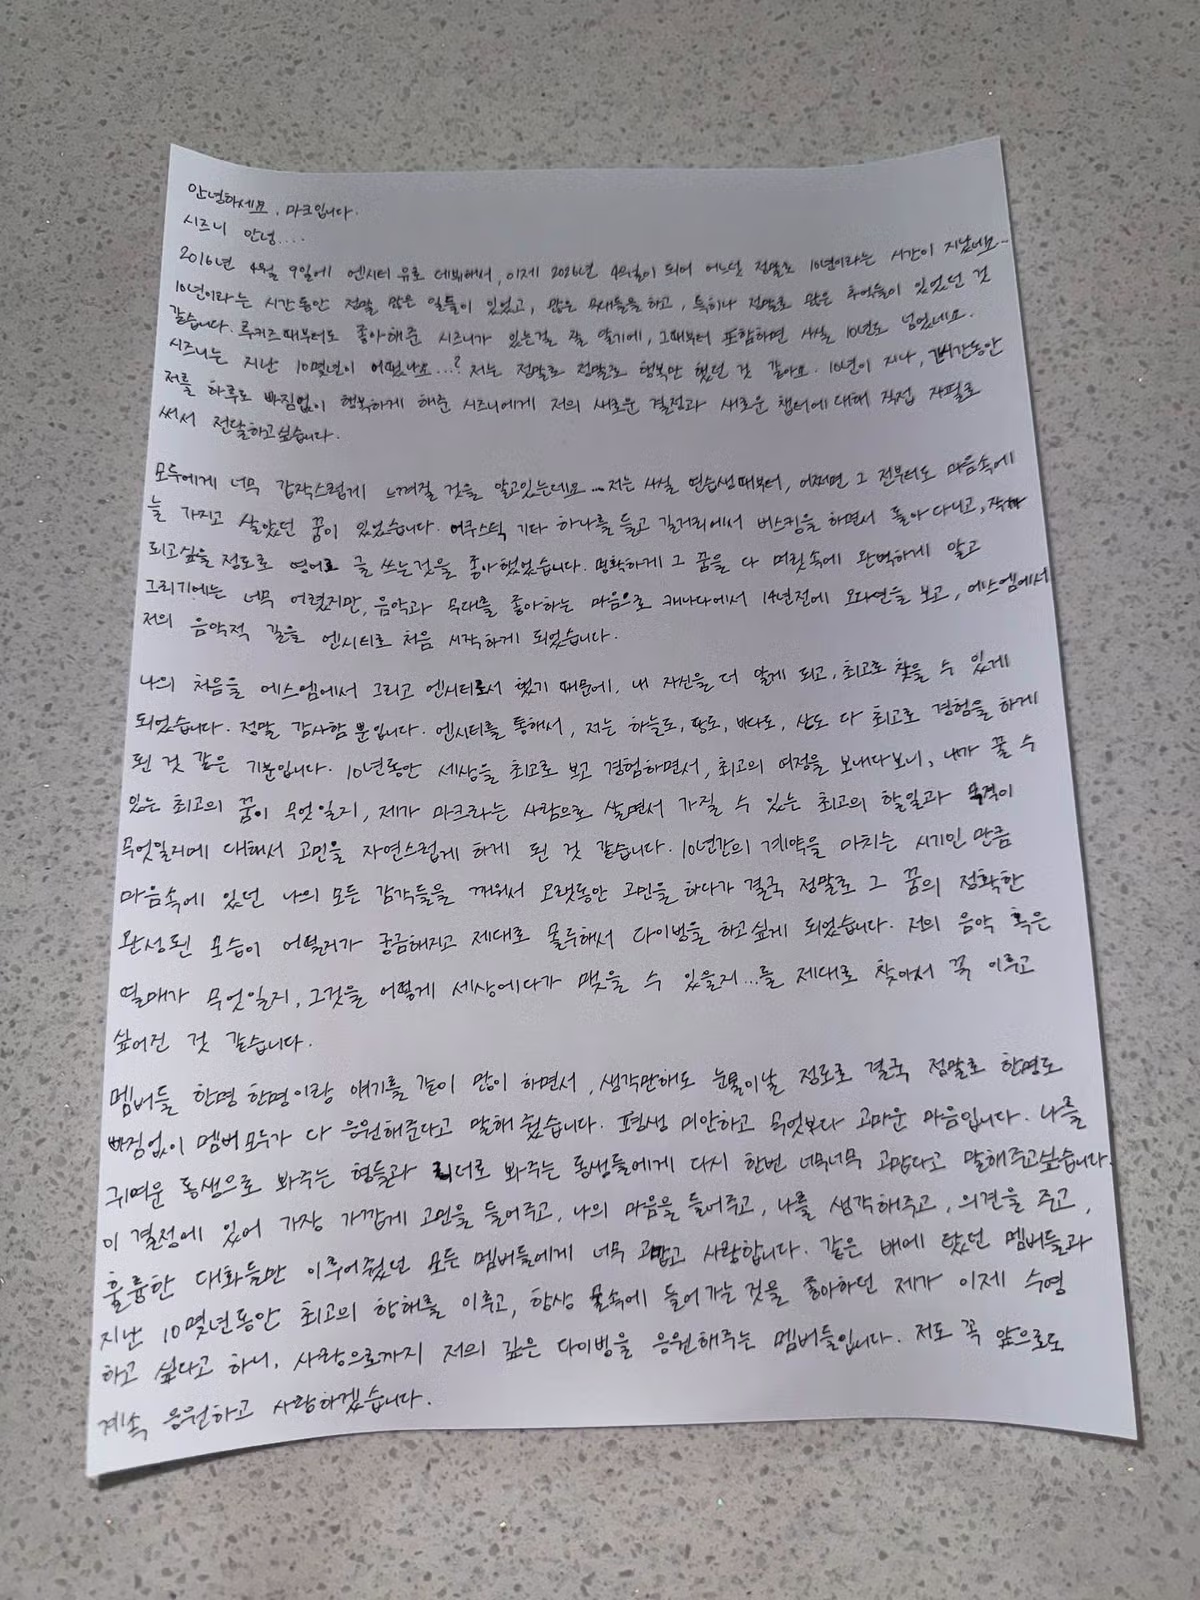 안녕하세요. 마크입니다.
시즈니 안녕....
2016년 4월 9일에 엔시티 유로 데뷔해서, 이제 2026년 4월이 되어 어느덧 정말로 10년이라는 시간이 지났네요..
10년이라는 시간동안 정말 많은 일들이 있었고, 많은 무대들을 하고, 특히나 정말로 많은 추억들이 있었던 것
같습니다. 루키즈때부터도 좋아해준 시즈니가 있는걸 잘 알기에, 그때부터 포함하면 사실 10년도 넘었네요.
시즈니는 지난 10몇년이 어땠나요...? 저는 정말로 정말로 행복만 했던 것 같아요. 10년이 지나, 긴시간동안
저를 하루도 빠짐없이 행복하게 해준 시즈니에게 저의 새로운 결정과 새로운 챕터에 대해 직접 자필로
써서 전달하고싶습니다.
모두에게 너무 갑작스럽게 느껴질 것을 알고있는데요... 저는 사실 연습생때부터, 어쩌면 그 전부터도 마음속에
늘 가지고 살았던 꿈이 있었습니다. 어쿠스틱 기타 하나를 들고 길거리에서 버스킹을 하면서 돌아 다니고, 작가
되고싶을 정도로 영어로 글 쓰는것을 좋아했었습니다. 명확하게 그 꿈을 다 머릿속에 완벽하게 알고
그리기에는 너무 어렸지만, 음악과 무대를 좋아하는 마음으로 캐나다에서 14년전에 오디션을 보고, 에스엠에서
저의 음악적 길을 엔시티로 처음 시작하게 되었습니다.
나의 처음을 에스엠에서 그리고 엔시티로서 했기 때문에, 내 자신을 더 알게 되고, 최고로 찾을 수 있게
되었습니다. 정말 감사함 뿐입니다. 엔시티를 통해서, 저는 하늘도, 땅도, 바다도, 산도 다 최고로 경험을 하게
된 것 같은 기분입니다. 10년동안 세상을 최고로 보고 경험하면서, 최고의 여정을 보내다보니, 내가 꿀 수
있는 최고의 꿈이 무엇일지, 제가 마크라는 사람으로 살면서 가질 수 있는 최고의 할일과 목적이
무엇일지에 대해서 고민을 자연스럽게 하게 된 것 같습니다. 10년간의 계약을 마치는 시기인 만큼
마음속에 있던 나의 모든 감각들을 깨워서 오랫동안 고민을 하다가 결국 정말로 그 꿈의 정확한
완성된 모습이 어떨런가 궁금해지고 제대로 몰두해서 다이빙을 하고싶게 되었습니다. 저의 음악 혹은
열매가 무엇일지, 그것을 어떻게 세상에다가 맺을 수 있을지...를 제대로 찾아서 꼭 이루고
싶어진 것 같습니다.
멤버들 한명 한명이랑 얘기를 같이 많이 하면서, 생각만해도 눈물이날 정도로 결국 정말로 한명도
빠짐없이 멤버 모두가 다 응원해준다고 말해 줬습니다. 평생 미안하고 무엇보다 고마운 마음입니다. 나를
귀여운 동생으로 봐주는 형들과 리더로 봐주는 동생들에게 다시 한번 너무너무 고맙다고 말해주고싶습니다.
이 결정에 있어 가장 가깝게 고민을 들어주고, 나의 마음을 들어주고, 나를 생각해주고, 의견을 주고,
훌륭한 대화들만 이루어줬던 모든 멤버들에게 너무 고맙고 사랑합니다. 같은 배에 탔던 멤버들과
지난 10몇년동안 최고의 항해를 이루고, 항상 물속에 들어가는것을 좋아하던 제가 이제 수영
하고 싶다고 하니, 사랑으로까지 저의 깊은 다이빙을 응원해주는 멤버들입니다. 저도 꼭 앞으로도
계속 응원하고 사랑하겠습니다.